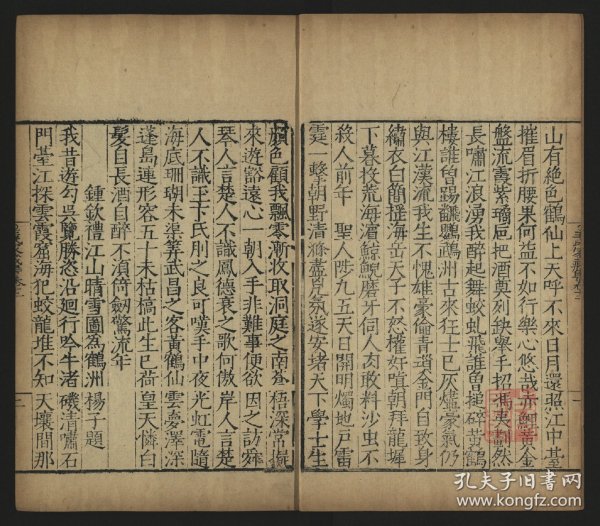 山有絶色鶴仙上天呼不來日月還照江中臺
摧眉折腰果何益不如行樂心悠哉赤鯉黃金
盤流霞紫瓊巵把酒奠列缺舉手招馮夷劃然
長嘯江浪湧我醉起舞蛟虬飛誰曾搥碎黃鶴
樓誰曾踢翻鸚鵡洲古來狂士已灰燼豪氣仍
與江漢流我生不愧雄豪倫青道金門白致身
繡衣白簡摇海岳天子不怒權奸嗔朝拜龍墀
下暮牧荒海湄鯨鯢磨牙伺人肉敢料沙虫不
殺人前年 聖人陟九五天日開明燭地戸雷
霆一 朝野清滌 氛遂安堵天下學士生
顔色顧我飄零漸收取洞庭之南蒼梧深常儗
來遊豁遠心一朝入手非難事便欲因之訪舜
琴人言楚人不識鳳德衰之歌何傲岸人言楚
人不識玉卞氏刖之良可嘆手中夜光虹電隨
海底珊瑚未渠筭武昌之客黃鶴仙雲夢澤深
蓬島連形容五十未枯槁此生已荷皇天憐白
髪自長酒自醉不湏符劒驚流年
鍾欽禮江山晴雪圖為鶴洲楊子題
我昔遊勾吳覽勝恣沿廻行吟牛渚磯清嘯石
門臺江探雲霞窟海犯蛟龍堆不知天壤間那
孔夫子旧書网
www.kongfz.com